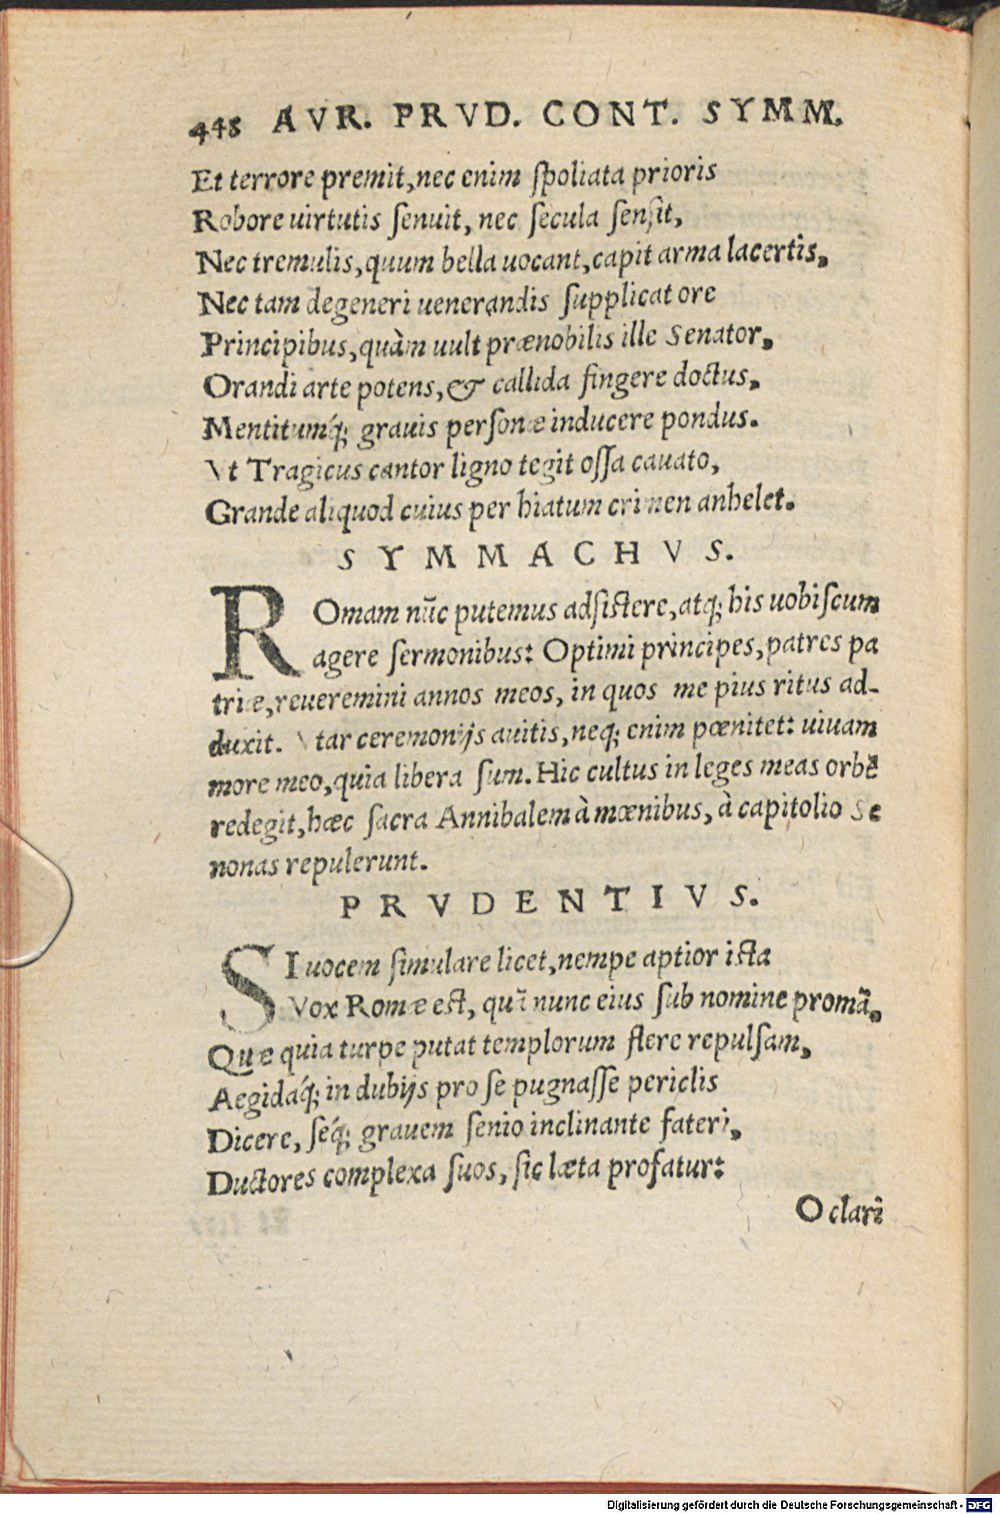 448 AVR. PRVD. CONT. SYMM.
Et terrore premit, nec enim ſpoliata prioris
Robore uirtutis ſenuit, nec ſecula ſenſit,
Nec tremulis, quum bella uocant, capit arma lacertis,
Nec tam degeneri uenerandis ſupplicat ore
Principibus, quàm uult prænobilis ille Senator,
Orandi arte potens, & callida fingere doctus,
Mentitumq́; grauis perſonæ inducere pondus.
Vt Tragicus cantor ligno tegit oſſa cauato,
Grande aliquod cuius per hiatum crimen anhelet.
SYMMACHVS.
ROmam nũc putemus adſiſtere, atq; his uobiſcum
agere ſermonibus: Optimi principes, patres pa
triæ, reueremini annos meos, in quos me pius ritus ad-
duxit. Vtar ceremonijs auitis, neq; enim pœnitet: uiuam
more meo, quia libera ſum. Hic cultus in leges meas orbẽ
redegit, hæc ſacra Annibalem à mœnibus, à capitolio Se
nonas repulerunt.
PRVDENTIVS.
SI uocem ſimulare licet, nempe aptior iſta
Vox Romæ eſt, quã nunc eius ſub nomine promã,
Quæ quia turpe putat templorum flere repulſam,
Aegidaq́; in dubijs pro ſe pugnaſſe periclis
Dicere, ſeq́; grauem ſenio inclinante fateri,
Ductores complexa ſuos, ſic læta profatur:
O clari
Digitalisierung gefördert durch die Deutsche Forschungsgemeinschaft - DFG